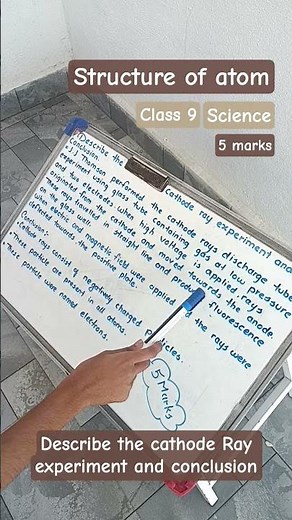 Structure of atom
Class 9 Science
5 marks
Describe the Cathode ray experiment and
Conclusion.
J.J Thomson performed the cathode rays discharge tube
experiment using glass tube containing gas at low pressure
and two electrodes. When high voltage is applied rays
originated from the cathode and moved towards the anode.
These rays travelled in straight line and produced fluorescence
on the glass wall.
When electric and magnetic field were applied the rays were
deflected towards the positive plate.
Conclusion:-
Cathode rays consist of negatively charged particles.
These particle are present in all atoms.
These particle were named electrons.
5 Marks
Describe the cathode Ray
experiment and conclusion